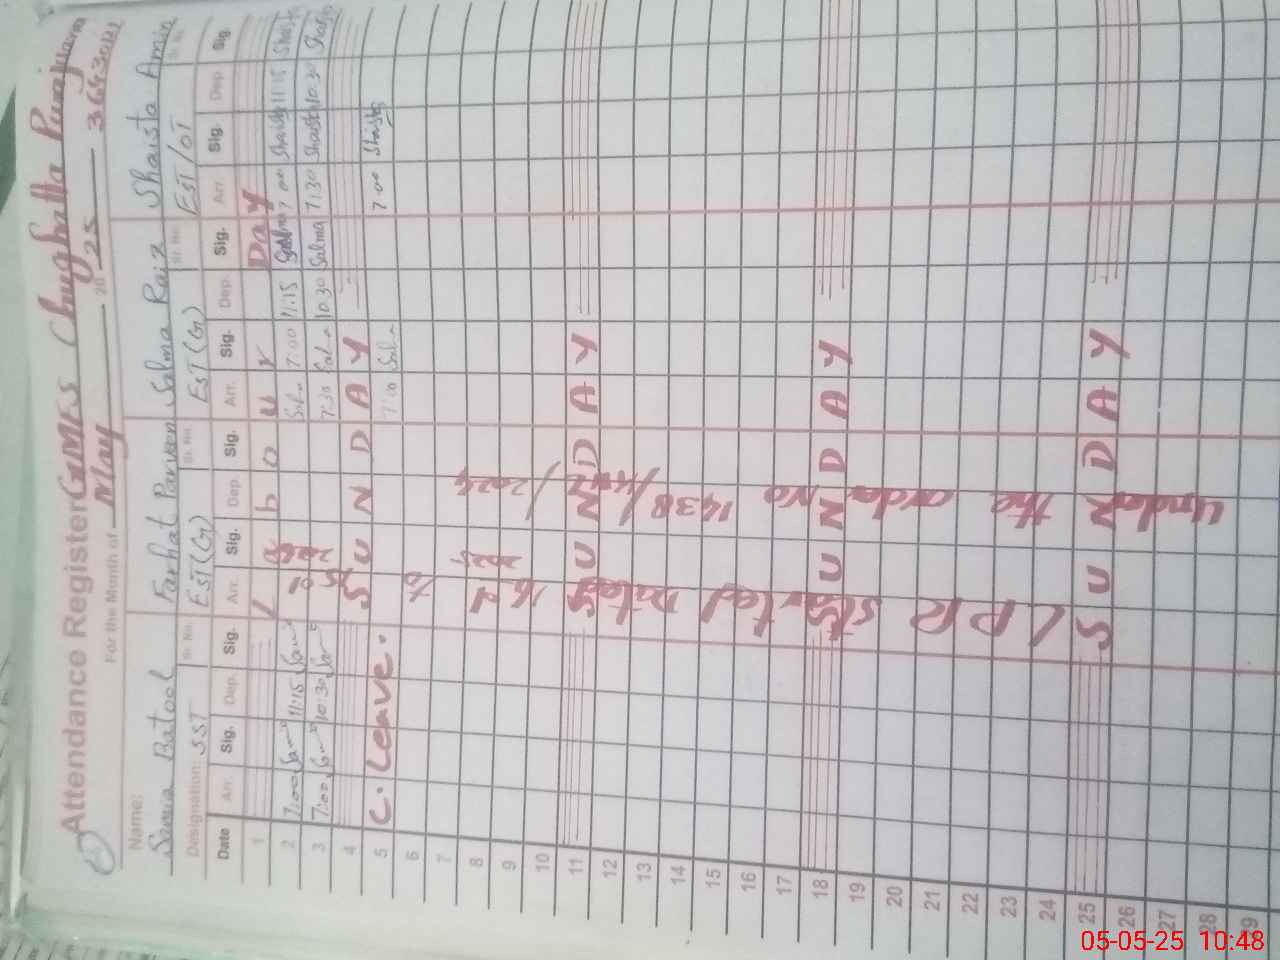 Attendance Register GMES Chughatta Purajwana
For the Month of May 2025 36430121
Name: Samia Batool Farhat Parveen Salma Raiz Shaista Amin
Designation: SST EST(G) EST(G) EST/OT
Sr. No. Sr. No. Sr. No. Sr. No.
Date Arr. Sig. Dep. Sig. Arr. Sig. Dep. Sig. Arr. Sig. Dep. Sig. Arr. Sig. Dep. Sig.
1 L a b o u r Day
2 7:00 Sam 11:15 Sam 7:00 11:15 Salma 7:00 Shaista 11:15 Shaista
3 7:00 Sam 10:30 Sam 7:30 Sal 10:30 Salma 7:30 Shaista 10:30 Shaista
4 S U N D A Y
5 C. Leave. 7:00 Sal 7:00 Shaista
6
7
8
9
10
11 S U N D A Y
12
13
14
15
16
17
18 S U N D A Y
19
20
21
22
23
24
25 S U N D A Y
26
27
28
29
LPR started Dated 16
to
under the order No 1438
/2024
05-05-25 10:48